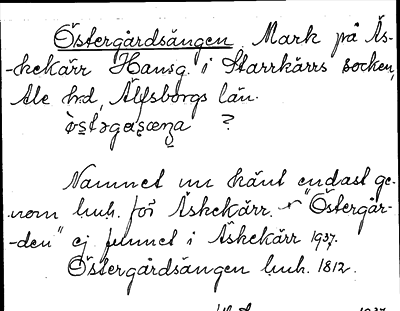 Östergårdsängen. Mark på Äs-
-kekärr Hansg. i Starrkärrs socken,
Ale hd, Älfsborgs län.
?
Namnet nu känt endast ge-
nom luh. för Äskekärr. "Östergår-
-den" ej funnet i Äskekärr 1937.
Östergårdsängen luh. 1812.